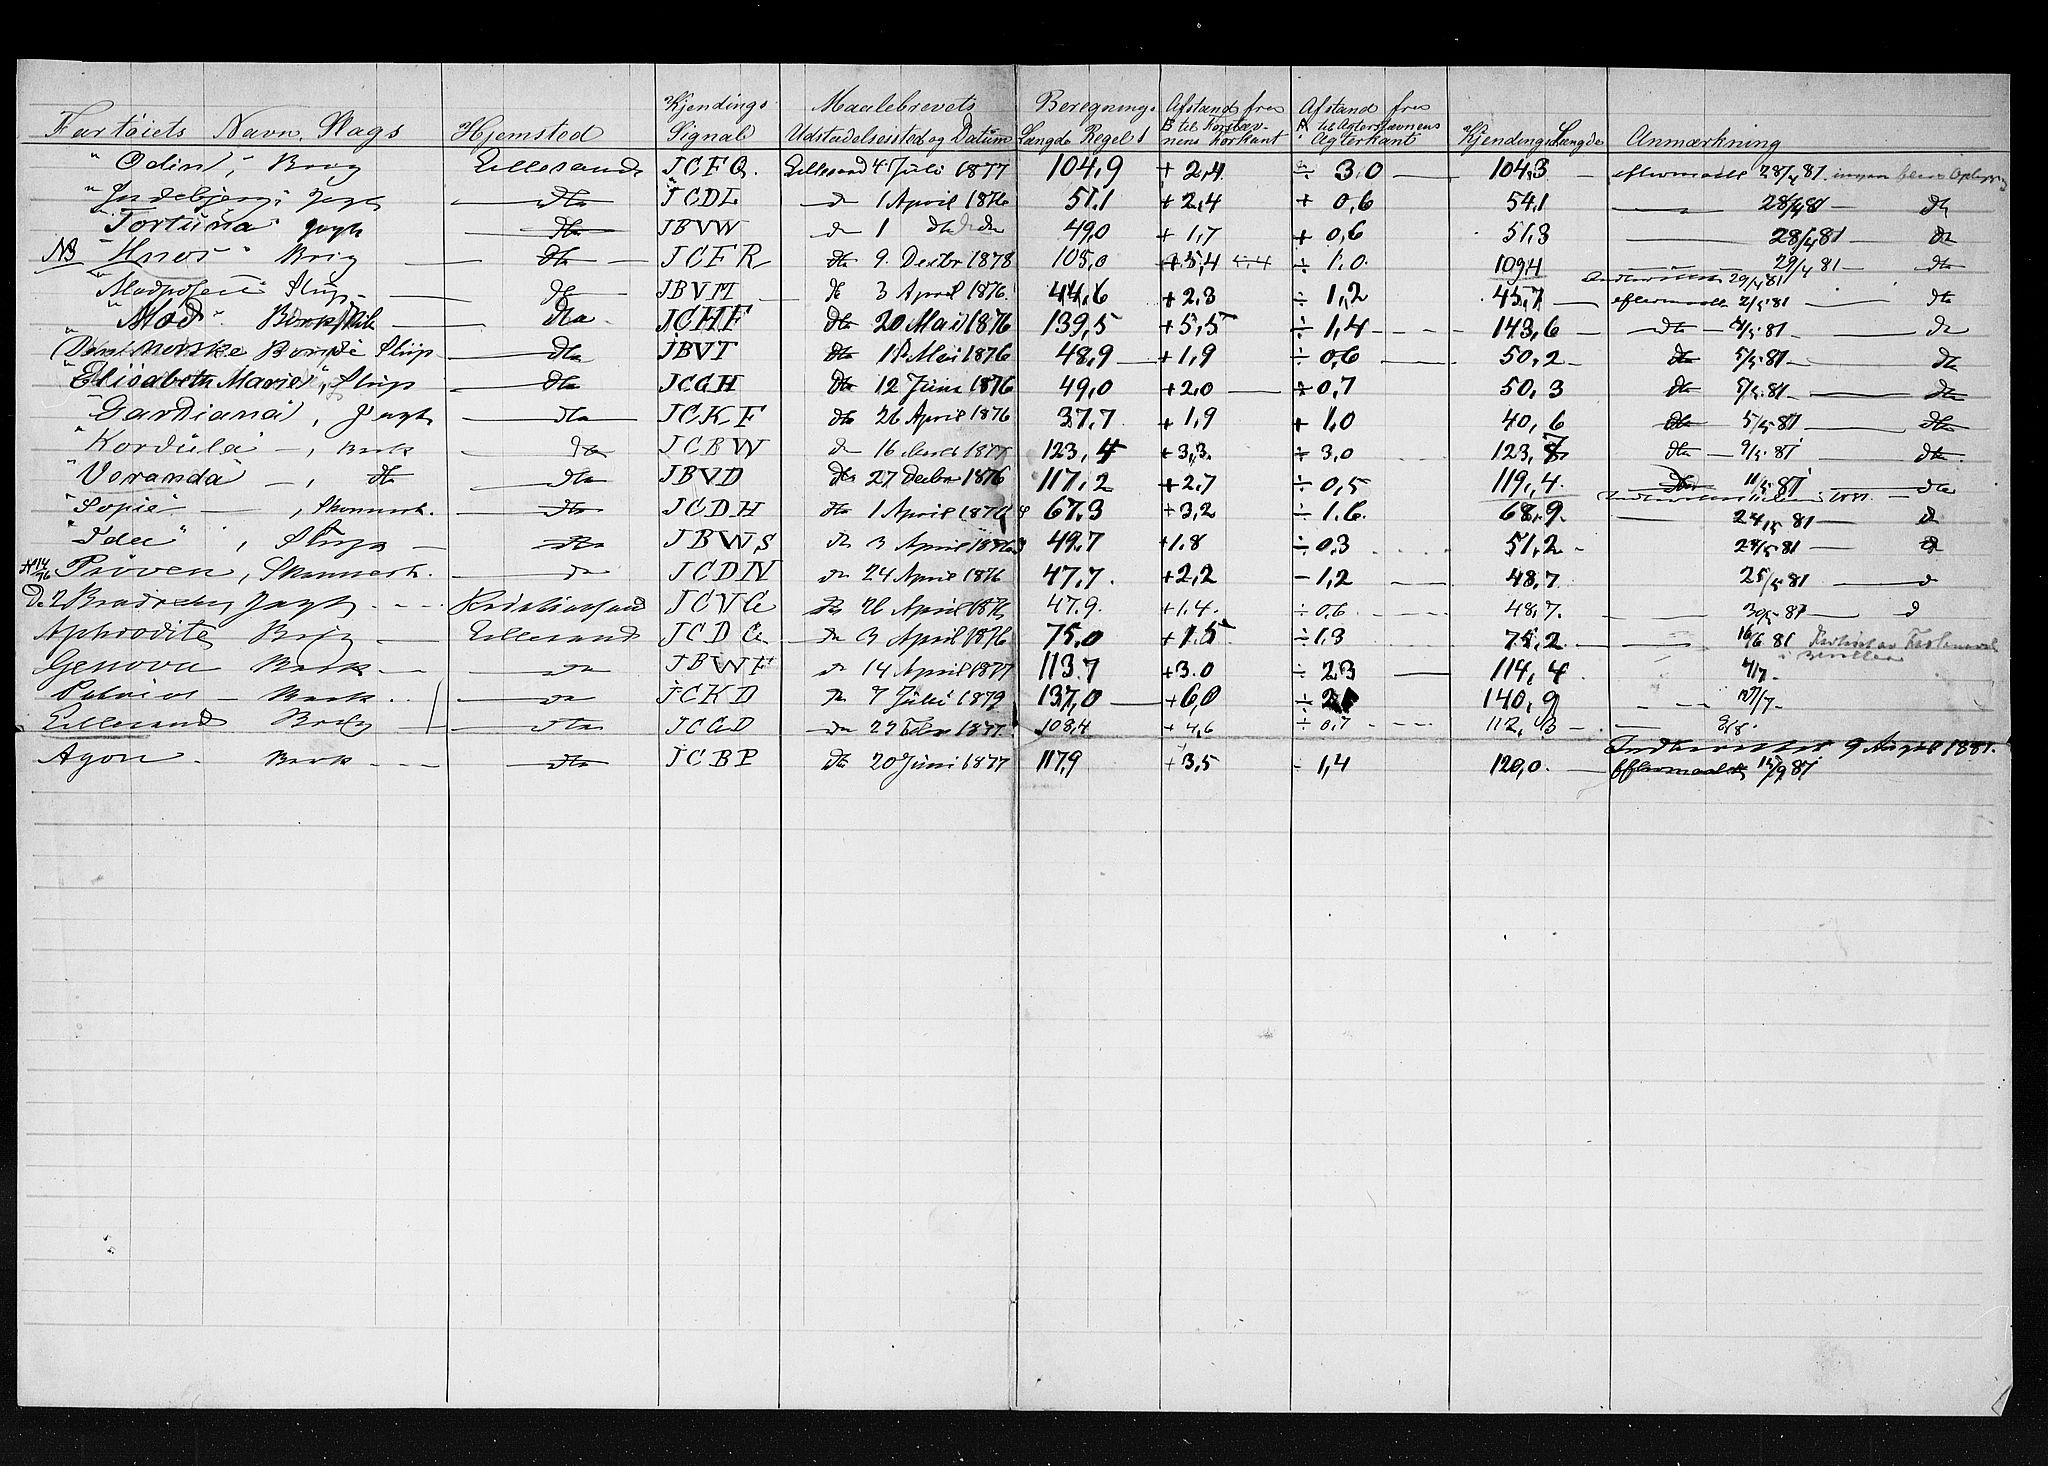 Fartøiets Navn. Slags Hjemsted Kjendings Signal Maalebrevets Udstedelsessted og Datum Beregnings Længde Regel 1 Afstand fra B til Forstævnens Forkant Afstand fra A til Agterstævnens Agterkant Kjendings Længde Anmærkning
"Odin", Brig Lillesand JCFQ. Lillesand 4 Juli 1877 104,9 + 2,4 ÷ 3,0 104,3 eftermaalt 28/4 81
Jagt dto JCDL do 1 April 1876 51,1 + 2,4 + 0,6 54,1 28/4 81 dto
"Fortuna" Jagt dto JBVW do 1 dto do 49,0 + 1,7 + 0,6 51,3 28/4 81 dto
NB Brig dto JCFR dto 9. Decbr 1878 105,0 + 5,4 ÷ 1,0 109,4 29/4 81 dto
Slup do JBVM do 3 April 1876. 44,6 + 2,3 ÷ 1,2 45,7 eftermaalt 2/5 81 dto
"Mod" dto JCHF dto 20 Mai 1876 139,5 + 5,5 ÷ 1,4 143,6 dto 4/5 81 do
Norske Bonde Slup dto JBVT dto 1876 48,9 + 1,9 ÷ 0,6 50,2 dto 5/5 81 dto
"Elisabeth Marie", Slup dto JCGH dto 12 Juni 1876 49,0 + 2,0 ÷ 0,7 50,3 dto 5/5 81 dto
"Gardiana", Jagt dto JCKF dto 26 April 1876 37,7 + 1,9 + 1,0 40,6 dto 5/5 81 dto
"Kordula", Bark dto JCBW do 16 123,4 + 3,3 ÷ 3,0 123,7 dto 9/5 81 dto
"Veranda", dto dto JBVD dto 27 Decbr 1876 117,2 + 2,7 ÷ 0,5 119,4 dto 11/5 81 dto
"Sopie", Skonnert. dto JCDH dto 1 April 1876 67,3 + 3,2 ÷ 1,6 68,9 24/5 81 do
"Ida", Slup dto JBWS do 3 April 1876 49,7 + 1,8 ÷ 0,3 51,2 24/5 81 do
Prøven, Skonnert. do JCDN do 24 April 1876 47,7 + 2,2 - 1,2 48,7 25/5 81 do
De 2 Brødre, Jagt Kristiansand JCVG do 26 April 1876 47,9 + 1,4 ÷ 0,6 48,7 30/5 81 do
Aphrodite Brig Lillesand JCDG do 3 April 1876 75,0 + 1,5 ÷ 1,3 75,2 16/6 81
Genova Bark do JBWF do 14 April 1877 113,7 + 3,0 ÷ 2,3 114,4 4/7
Bark do JCKD do 7 Juli 1879 137,0 + 6,0 ÷ 2,1 140,9 /7
Lillesand Brig dto JCGD do 27 Febr 1877 108,4 + 4,6 ÷ 0,7 112,3 9/8
9 August 1881.
Agon Bark dto JCBP dto 20 Juni 1877 117,9 + 3,5 ÷ 1,4 120,0 eftermaalt 15/9 81